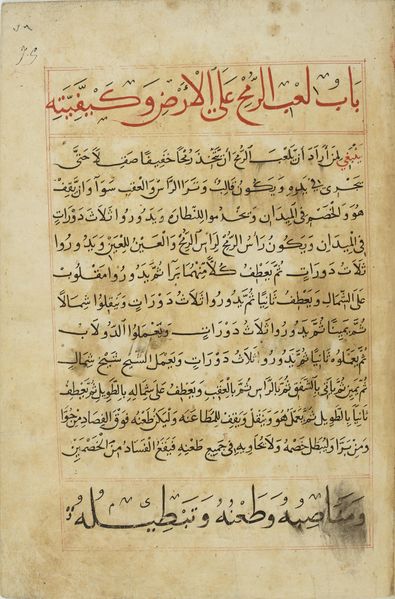 باب لعب الرمح على الارض وكيفيته
ينبغي لمن اراد ان يلعب الرمح ان يتخذ رمحا خفيفا صغير لاحتى
يجرى في يده ويكون قالب وترا الراس والعقب سوا وان يقف
هو والخصم في الميدان ويخدموا البنطلان ويدوروا ثلاث دورات
في الميدان ويكون راس الرمح لراس الرمح والعين للعين ويدوروا
ثلاث دورات ثم يعطف كلا منهما برا ثم يدوروا مقلوب
على الشمال ويعطف ثانيا ثم يدوروا ثلاث دورات وينقلوا شمالا
ثم يمينا ثم يدوروا ثلاث دورات ويعملوا الدولاب
ثم يعملوه ثانيا ثم يدوروا ثلاث دورات ويعمل شمال
ثم يمين ثم ياتي بالشقق ثم بالراس ثم بالعقب ويعطف على شماله بالطويل ثم يعطف
ثانيا بالطويل ثم يعمل هو وينقل ويقف للمطاعنه وليكن طعنه فوق القصاد من جوا
ومن برا وليبطل خصمه ولا يحاويه في جميع طعنه فيقع الفساد من الخصمين
ومناصبه وطعنه وتبطيله